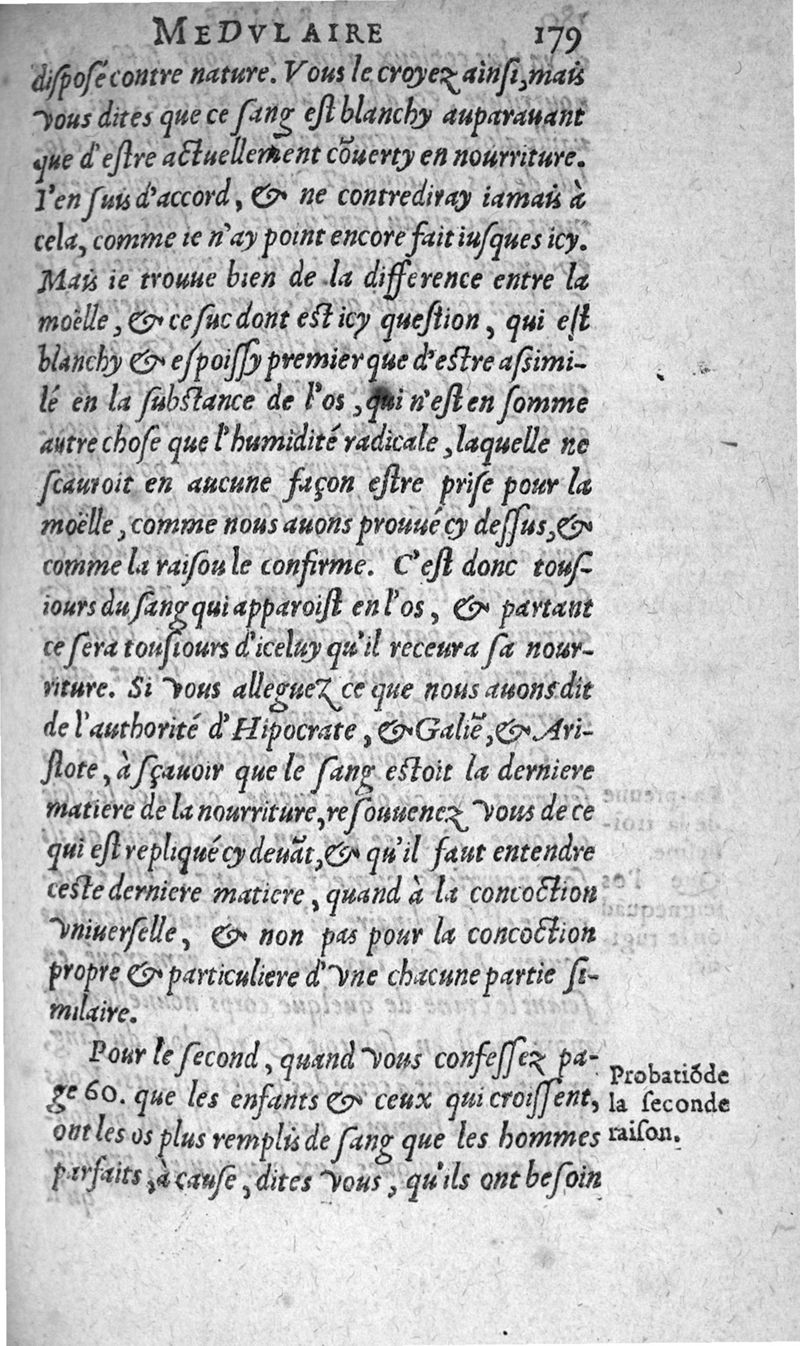 MEDVLAIRE 179
disposé contre nature. Vous le croyez ainsi, mais
vous dites que ce sang est blanchy auparauant
que d'estre actuellement cõuerty en nourriture.
I'en suis d'accord, & ne contrediray iamais à
cela, comme ie n'ay point encore fait iusques icy.
Mais ie trouue bien de la difference entre la
moëlle, & ce suc dont est icy question, qui est
blanchy & espoissy premier que d'estre assimi-
lé en la substance de l'os, qui n'est en somme
autre chose que l'humidité radicale, laquelle ne
scauroit en aucune façon estre prise pour la
moëlle, comme nous auons prouué cy dessus, &
comme la raisou le confirme. C'est donc tous-
iours du sang qui apparoist en l'os, & partant
ce sera tousiours d'iceluy qu'il receura sa nour-
riture. Si vous alleguez ce que nous auons dit
de l'authorité d'Hipocrate, & Galiẽ, & Ari-
stote, à sçauoir que le sang estoit la derniere
matiere de la nourriture, resouuenez vous de ce
qui est repliqué cy deuãt, & qu'il faut entendre
ceste derniere matiere, quand à la concoction
vniuerselle, & non pas pour la concoction
propre & particuliere d'vne chacune partie si-
milaire.
Pour le second, quand vous confessez pa-
ge 60. que les enfants & ceux qui croissent,
ont les os plus remplis de sang que les hommes
parfaits, à cause, dites vous, qu'ils ont besoin
Probatiõ de
la seconde
raison.